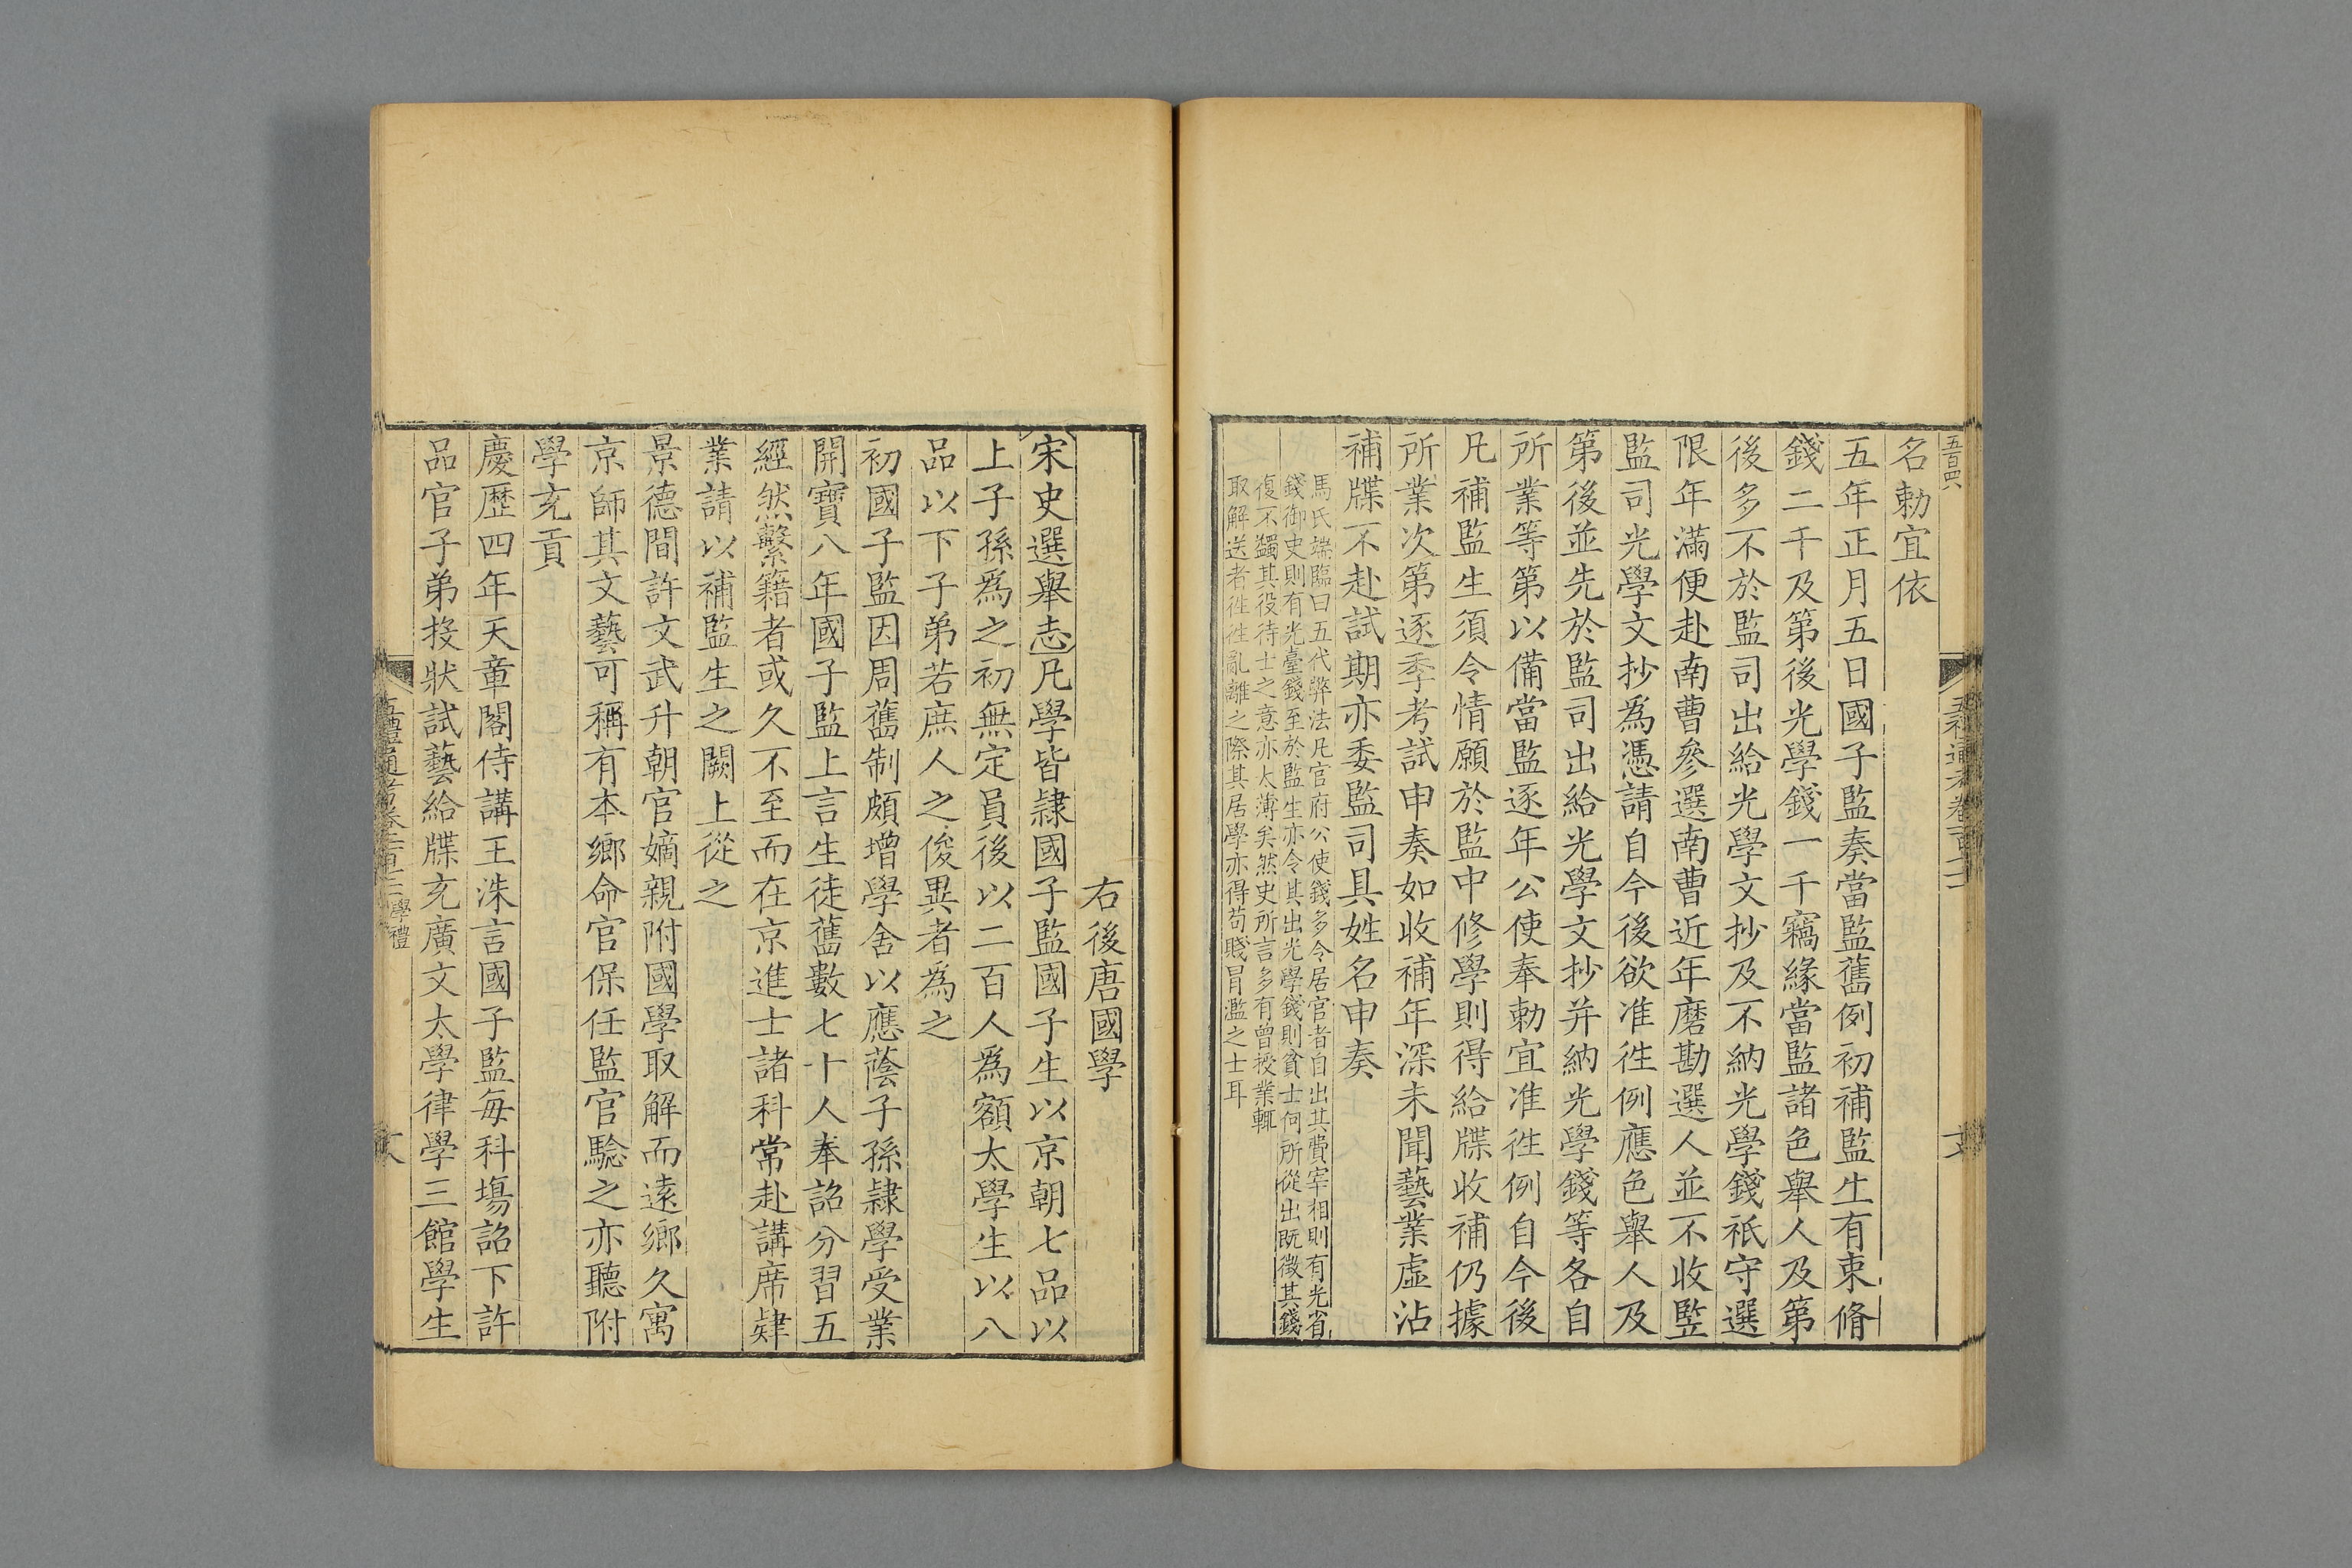 五百四六
名勅宜依
五年正月五日國子監奏當監舊例初補監生有束脩
錢二千及第後光學錢一千竊緣當監諸色舉人及第
後多不於監司出給光學文抄及不納光學錢祗守選
限年滿便赴南曹參選南曹近年磨勘選人並不收監
監司光學文抄爲憑請自今後欲准徃例應色舉人及
第後並先於監司出給光學文抄并納光學錢等各自
所業等第以備當監逐年公使奉勅宜准徃例自今後
凡補監生須令情願於監中修學則得給牒收補仍據
所業次第逐季考試申奏如收補年深未聞藝業虛沾
補牒不赴試期亦委監司具姓名申奏
馬氏端臨曰五代弊法凡官府公使錢多令居官者自出其費宰相則有光省
錢御史則有光臺錢至於監生亦令其出光學錢則貧士何所從出既徵其錢
復不蠲其役待士之意亦太薄矣然史所言多有曾授業輒
取解送者徃徃亂離之際其居學亦得苟賤冒濫之士耳
右後唐國學
宋史選舉志凡學皆隸國子監國子生以京朝七品以
上子孫爲之初無定員後以二百人爲額太學生以八
品以下子弟若庶人之俊異者爲之
初國子監因周舊制頗增學舍以應蔭子孫隸學受業
開寶八年國子監上言生徒舊數七十人奉詔分習五
經然繫籍者或久不至而在京進士諸科常赴講席肄
業請以補監生之闕上從之
景德間許文武升朝官嫡親附國學取解而遠鄉久寓
京師其文藝可稱有本鄉命官保任監官驗之亦聽附
學充貢
慶歷四年天章閣侍講王洙言國子監每科塲詔下許
品官子弟投狀試藝給牒充廣文太學律學三館學生
學禮